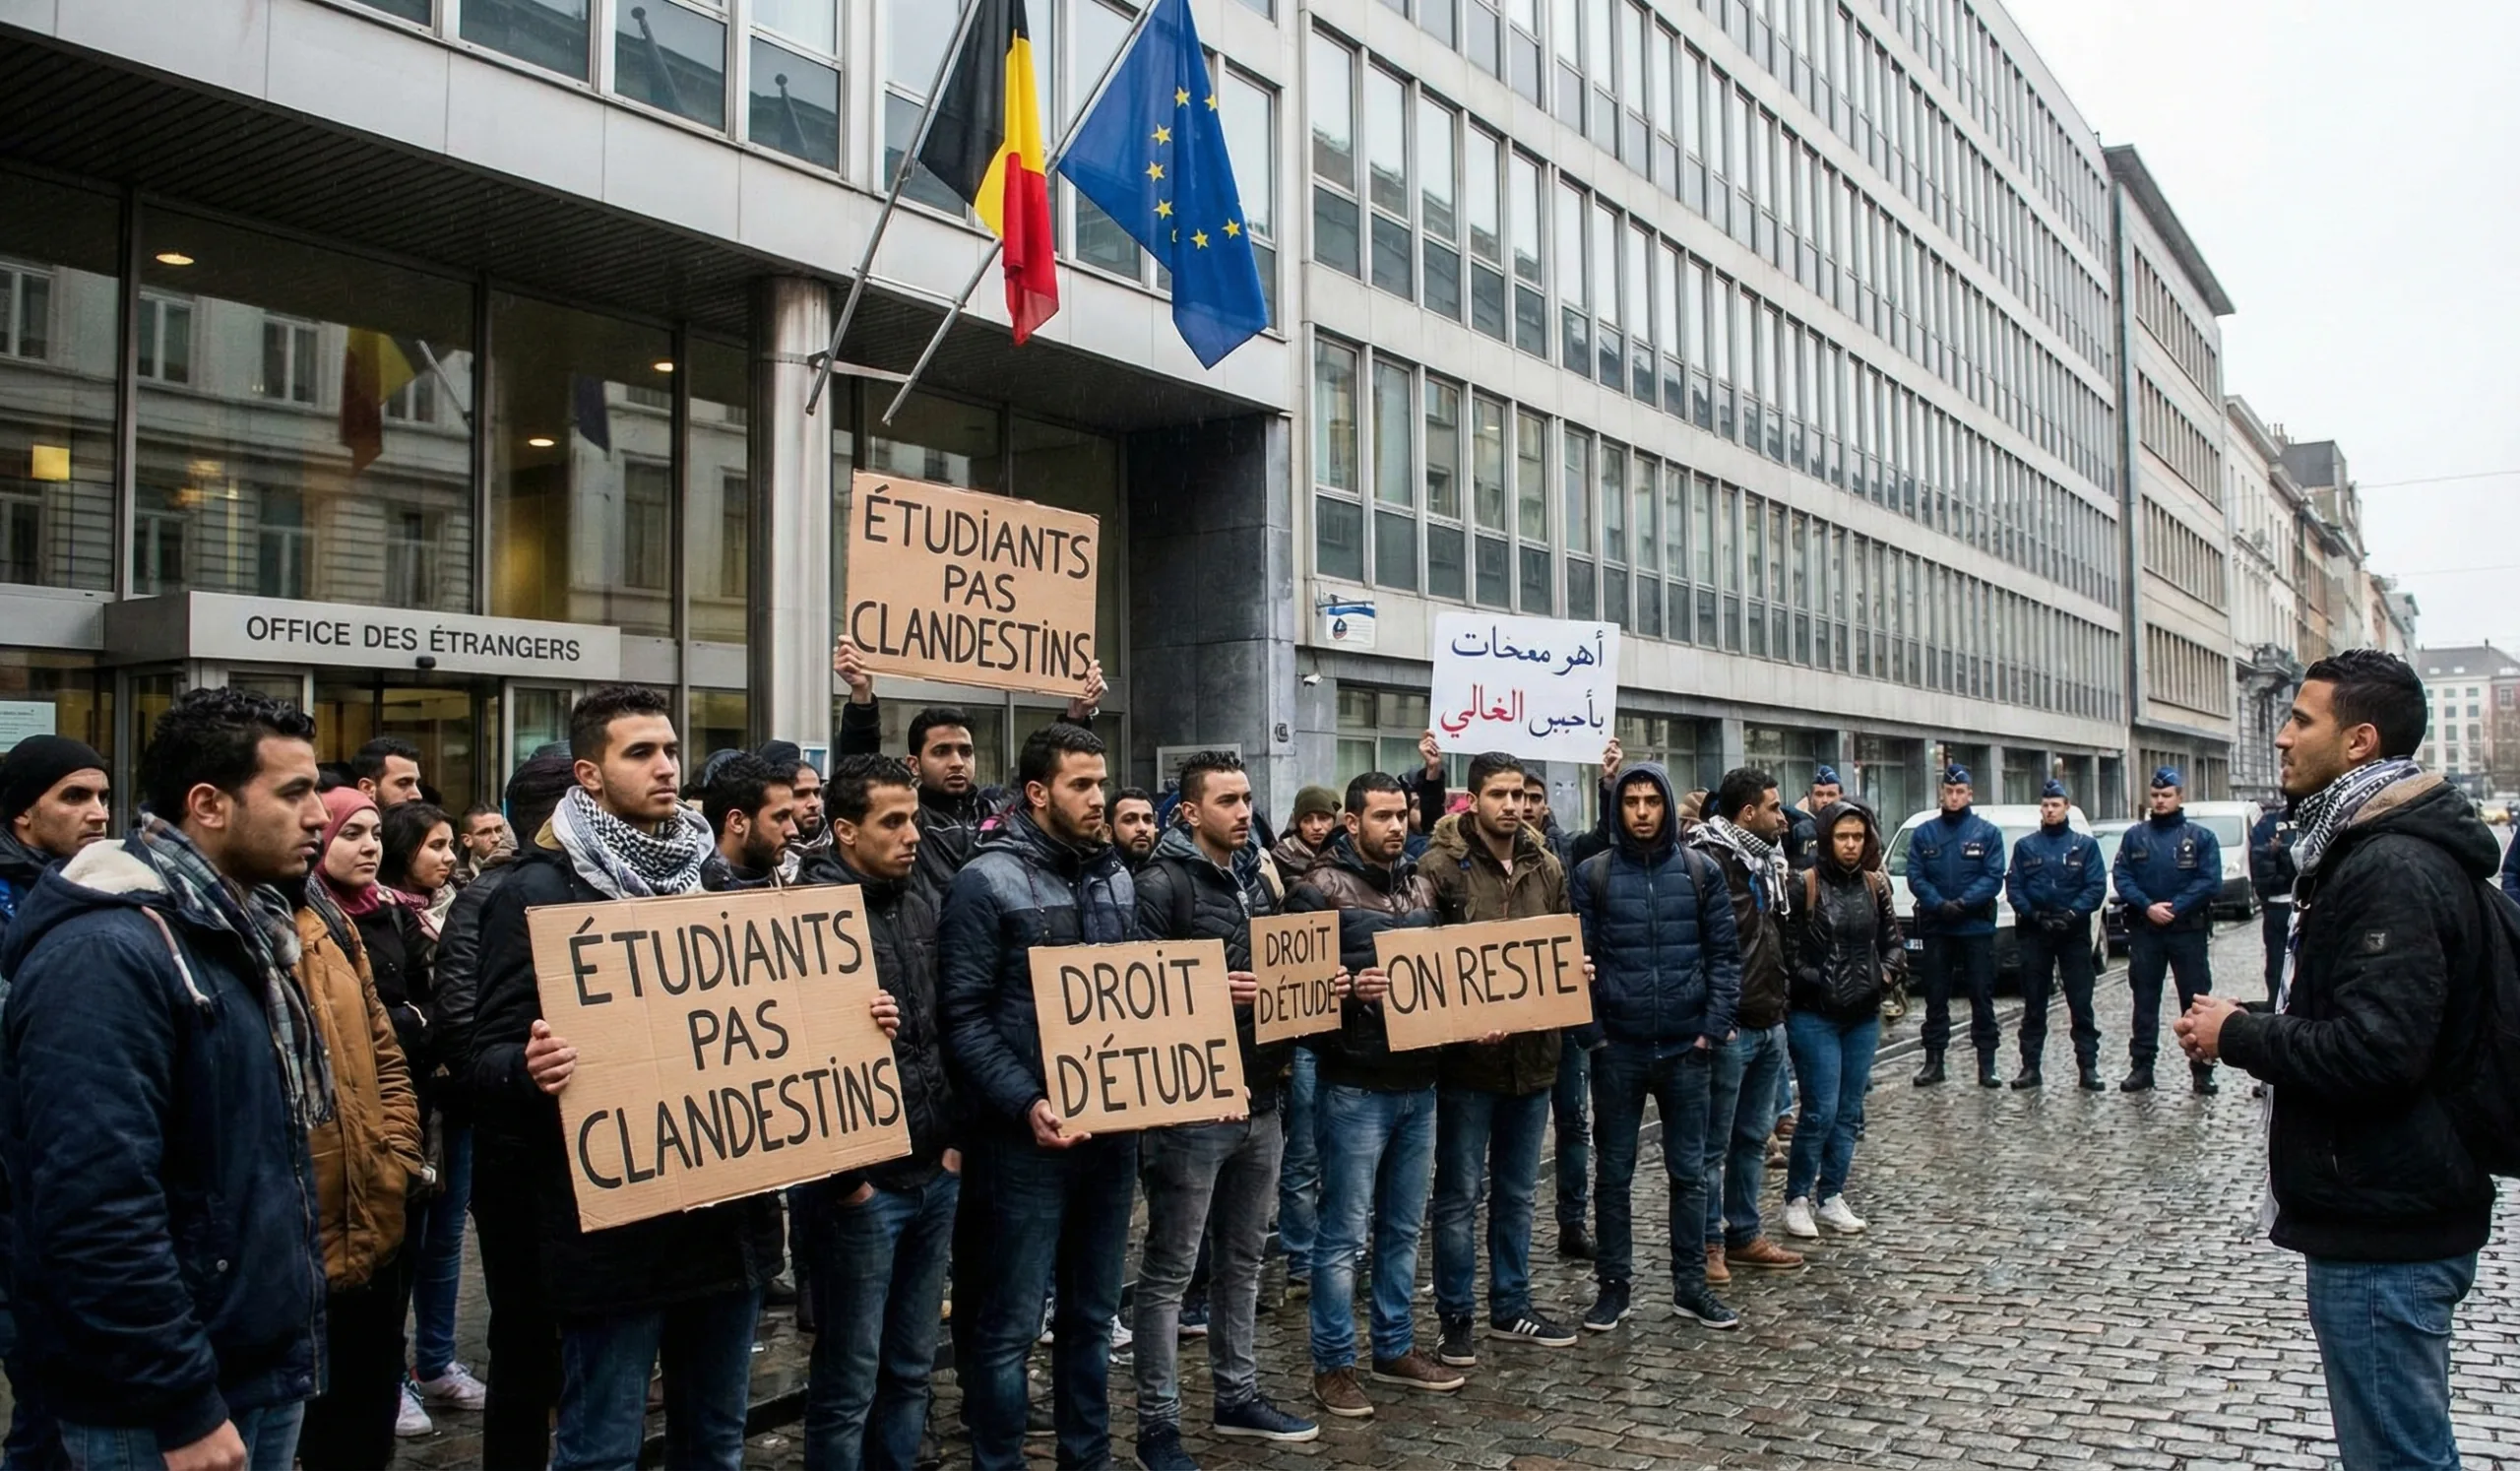 ÉTUDIANTS
PAS
CLANDESTINS
OFFICE DES ÉTRANGERS
أهو
الغالي
ÉTUDIANTS
PAS
CLANDESTINS
DROIT
D'ÉTUDE
DROIT
D'ÉTUDE
ON RESTE